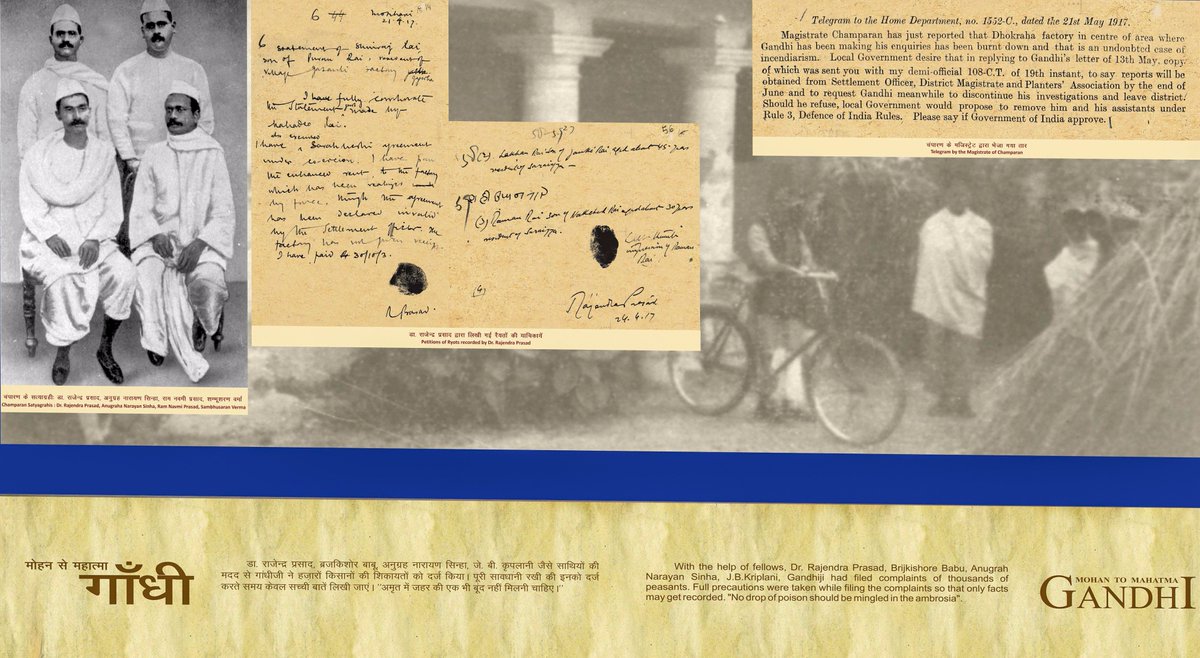 चंपारण के सत्याग्रही: डा. राजेन्द्र प्रसाद, अनुग्रह नारायण सिन्हा, राम नवमी प्रसाद, शम्भूशरण वर्मा
Champaran Satyagrahis : Dr. Rajendra Prasad, Anugraha Narayan Sinha, Ram Navmi Prasad, Sambhusaran Verma
6
21.4.17.
6 statement of
son of Puran Rai, resident of
village factory
I have fully corroborate
the statement made by
Mahadeo Rai.
I have a Sarahbeshi agreement
under coercion. I have paid
the enhanced rent to the factory
which has been realized
by force, though the agreement
has been declared invalid
by the Settlement Officer. The
factory has not given receipt.
I have paid
R Prasad.
56
Rai son of Rai aged about 45 years
resident of
(3) Raman Rai son of Rai aged about 30 years
resident of
impression of Raman
Rai.
(4)
Rajendra Prasad
24.4.17
डा. राजेन्द्र प्रसाद द्वारा लिखी गई रैयतों की याचिकायें
Petitions of Ryots recorded by Dr. Rajendra Prasad
Telegram to the Home Department, no. 1552-C., dated the 21st May 1917.
Magistrate Champaran has just reported that Dhokraha factory in centre of area where
Gandhi has been making his enquiries has been burnt down and that is an undoubted case of
incendiarism. Local Government desire that in replying to Gandhi's letter of 13th May, copy
of which was sent you with my demi-official 108-C.T. of 19th instant, to say reports will be
obtained from Settlement Officer, District Magistrate and Planters' Association by the end of
June and to request Gandhi meanwhile to discontinue his investigations and leave district.
Should he refuse, local Government would propose to remove him and his assistants under
Rule 3, Defence of India Rules. Please say if Government of India approve.
चंपारण के मजिस्ट्रेट द्वारा भेजा गया तार
Telegram by the Magistrate of Champaran
मोहन से महात्मा
गाँधी
डा. राजेन्द्र प्रसाद, ब्रजकिशोर बाबू, अनुग्रह नारायण सिन्हा, जे. बी. कृपलानी जैसे साथियों की
मदद से गांधीजी ने हजारों किसानों की शिकायतों को दर्ज किया। पूरी सावधानी रखी की इनको दर्ज
करते समय केवल सच्ची बातें लिखी जाएं। "अमृत में जहर की एक भी बूंद नहीं मिलनी चाहिए।"
With the help of fellows, Dr. Rajendra Prasad, Brijkishore Babu, Anugrah
Narayan Sinha, J.B.Kriplani, Gandhiji had filed complaints of thousands of
peasants. Full precautions were taken while filing the complaints so that only facts
may get recorded. "No drop of poison should be mingled in the ambrosia".
MOHAN TO MAHATMA
GANDHI